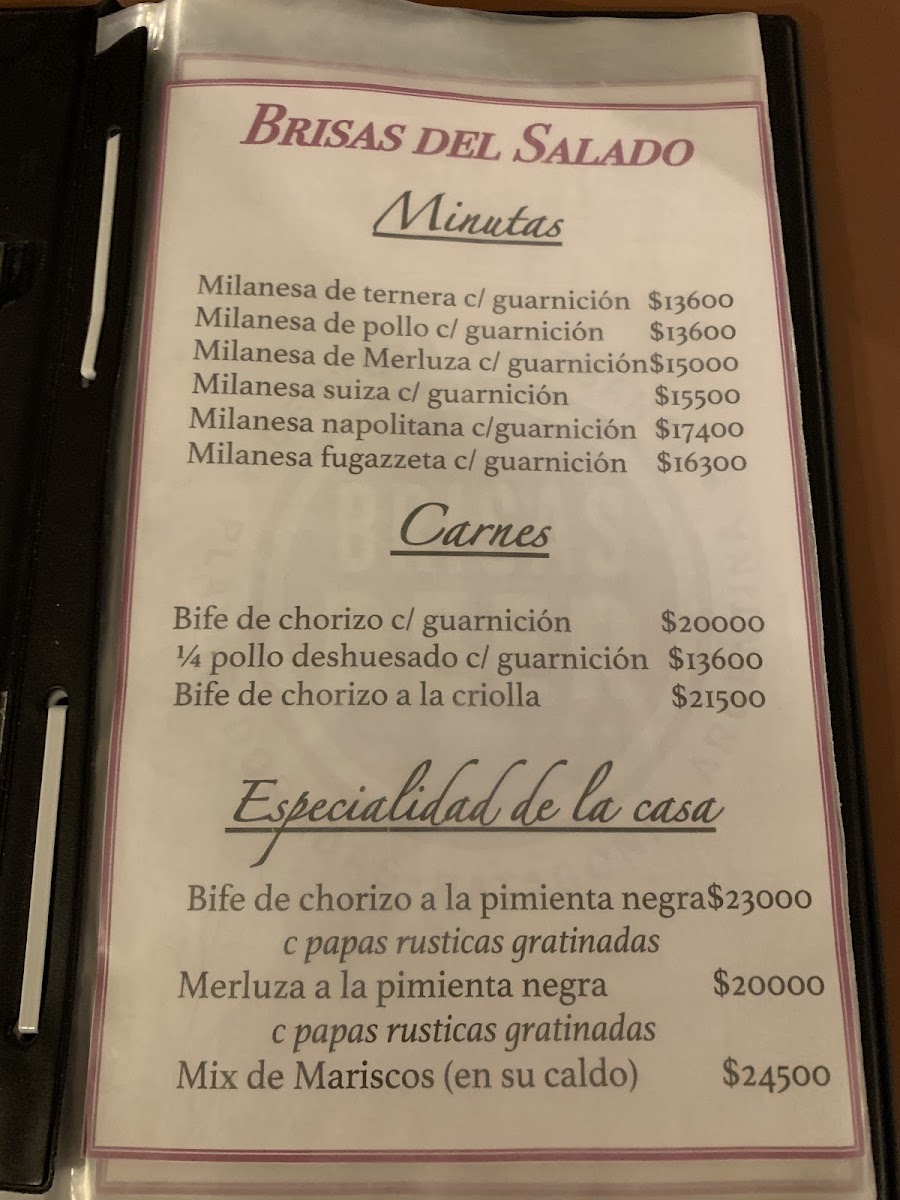 BRISAS DEL SALADO
Minutas
Milanesa de ternera c/ guarnición $13600
Milanesa de pollo c/ guarnición $13600
Milanesa de Merluza c/ guarnición$15000
Milanesa suiza c/ guarnición $15500
Milanesa napolitana c/guarnición $17400
Milanesa fugazzeta c/ guarnición $16300
Carnes
Bife de chorizo c/ guarnición $20000
¼ pollo deshuesado c/ guarnición $13600
Bife de chorizo a la criolla $21500
Especialidad de la casa
Bife de chorizo a la pimienta negra$23000
c papas rusticas gratinadas
Merluza a la pimienta negra $20000
c papas rusticas gratinadas
Mix de Mariscos (en su caldo) $24500